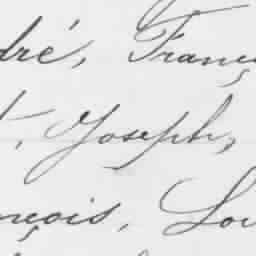 dré, Franç
, Joseph,
nçois, Lou